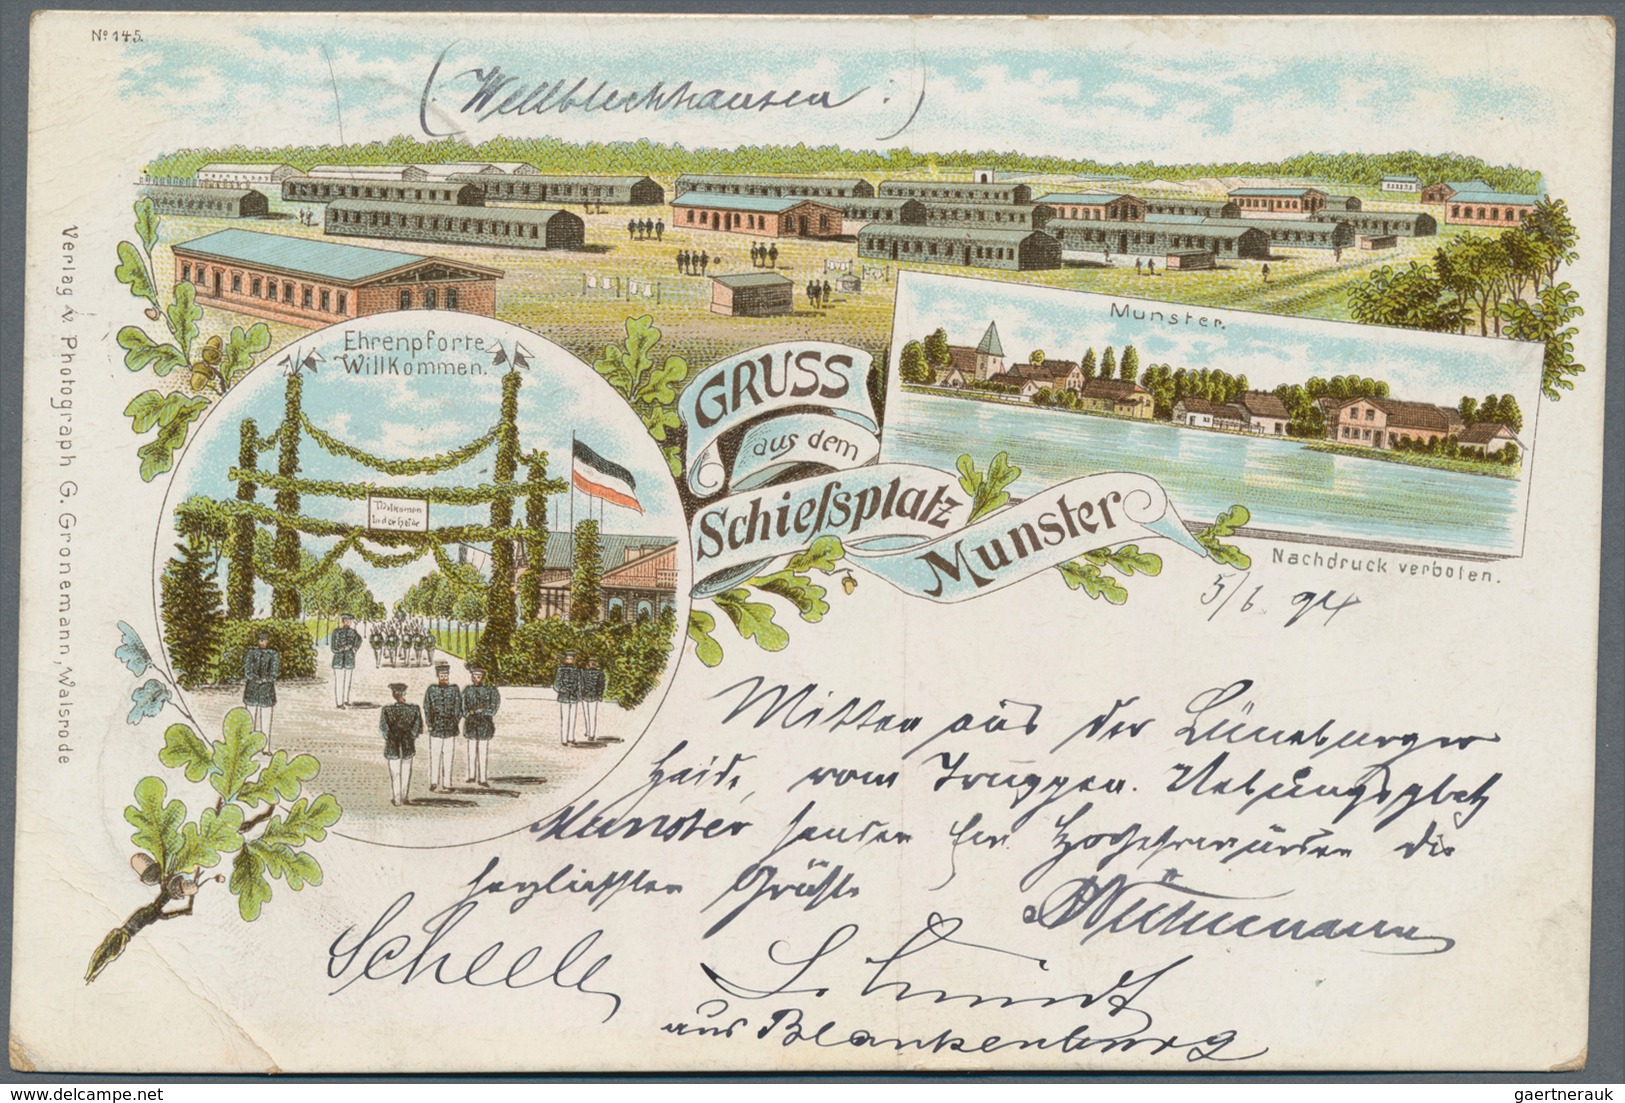 No 145.
(Wellblechhausen.)
Verlag v. Photograph G. Gronemann, Walsrode
Ehrenpforte
Willkommen.
Willkomen
In der Heide
Munster.
GRUSS
aus dem
Schiessplatz
Munster
Nachdruck verboten.
5/6 94
Mitten aus der Lüneburger
Haide, vom Truppen. Uebungsplatz
Munster senden Ew. Hochehrwürden die
herzlichsten Grüße
Scheele
Schmidt
aus Blankenburg
delcampe.net
gaertnerauk